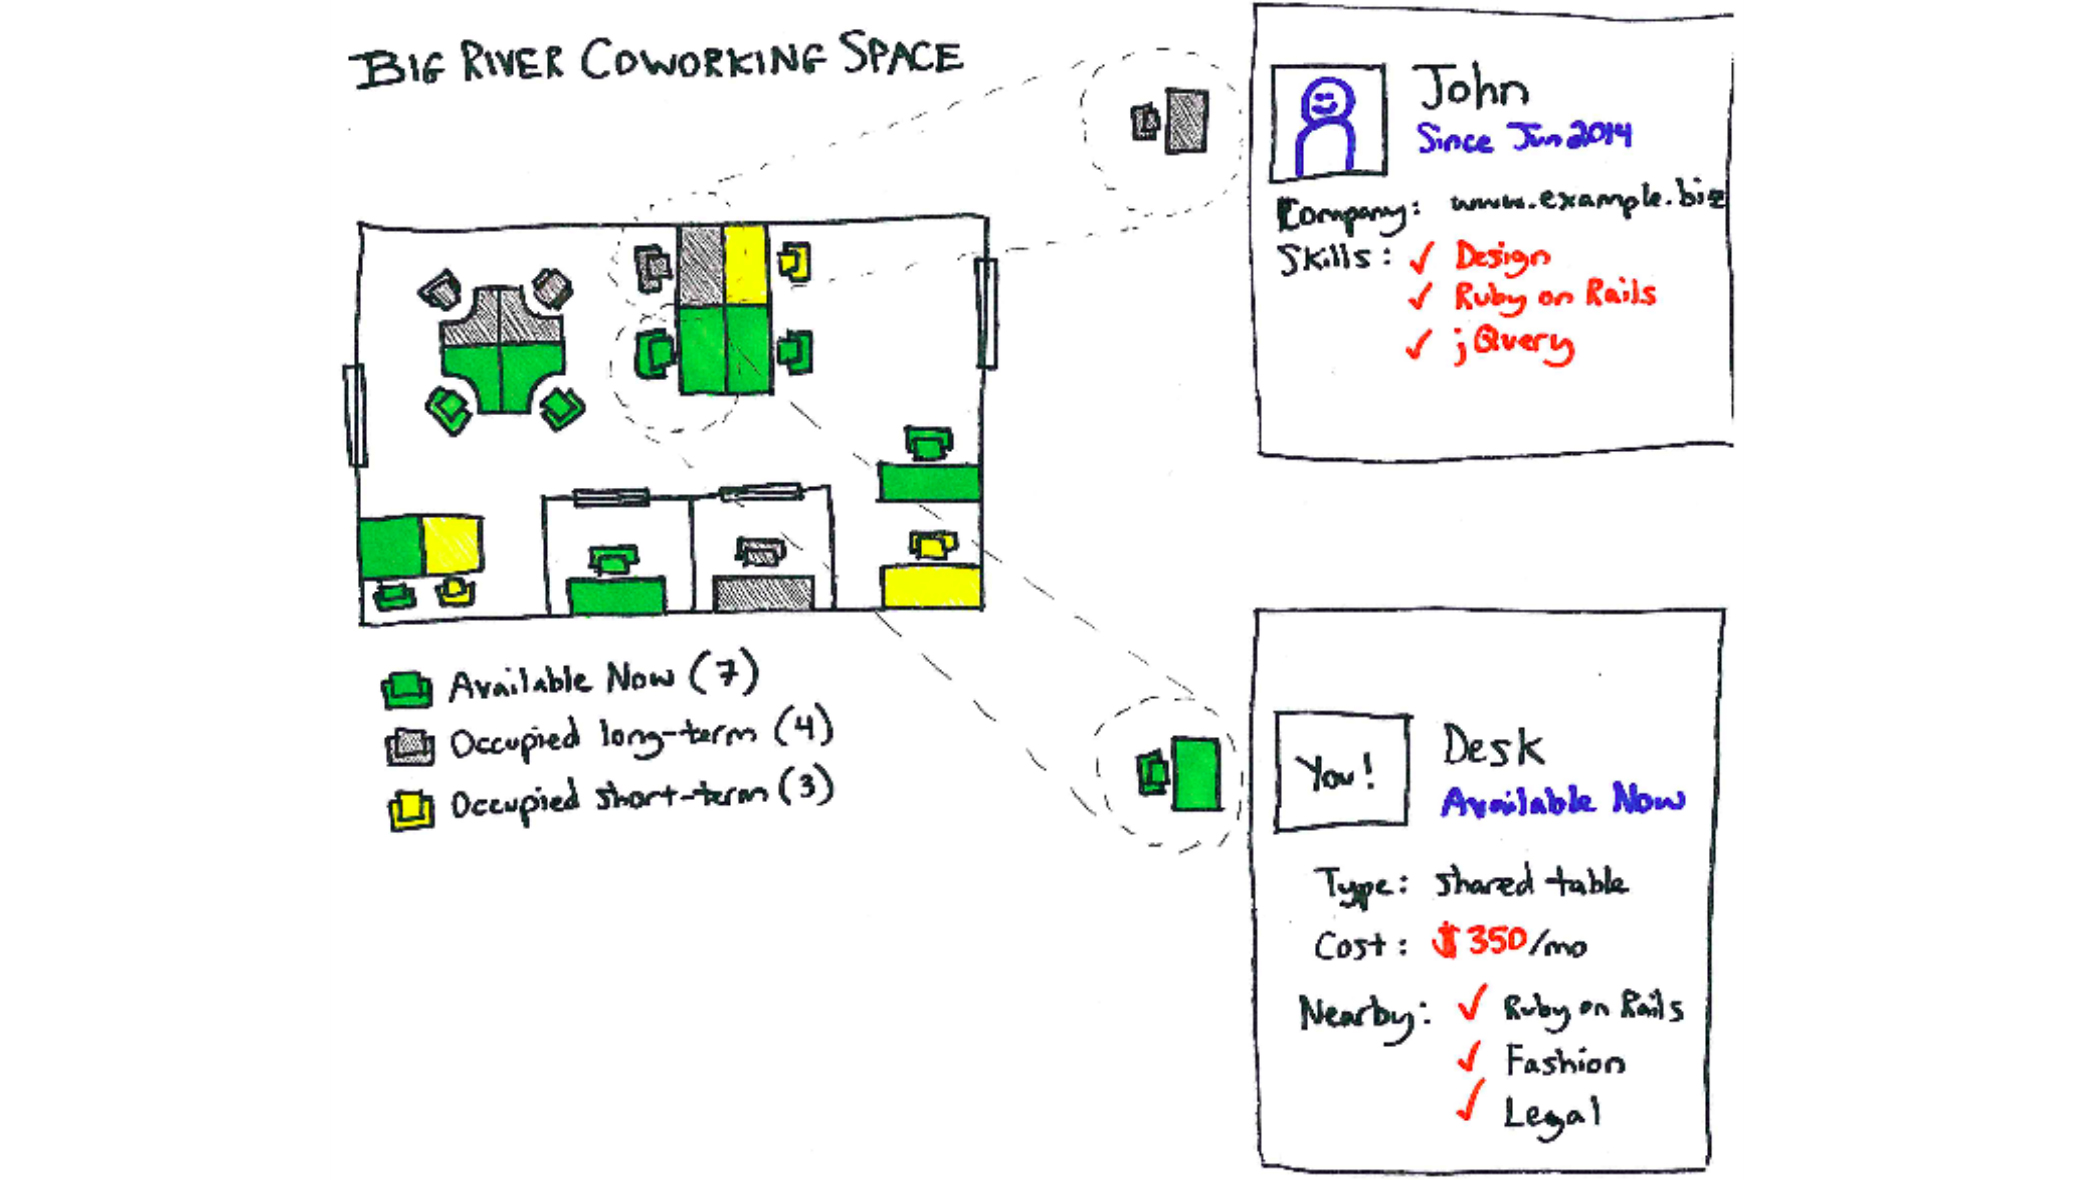 BIG RIVER COWORKING SPACE
Available Now (7)
Occupied long-term (4)
Occupied short-term (3)
John
Since Jun 2014
Company: www.example.biz
Skills: ✓ Design
✓ Ruby on Rails
✓ jQuery
You!
Desk
Available Now
Type: shared table
Cost: $350/mo
Nearby: ✓ Ruby on Rails
✓ Fashion
✓ Legal